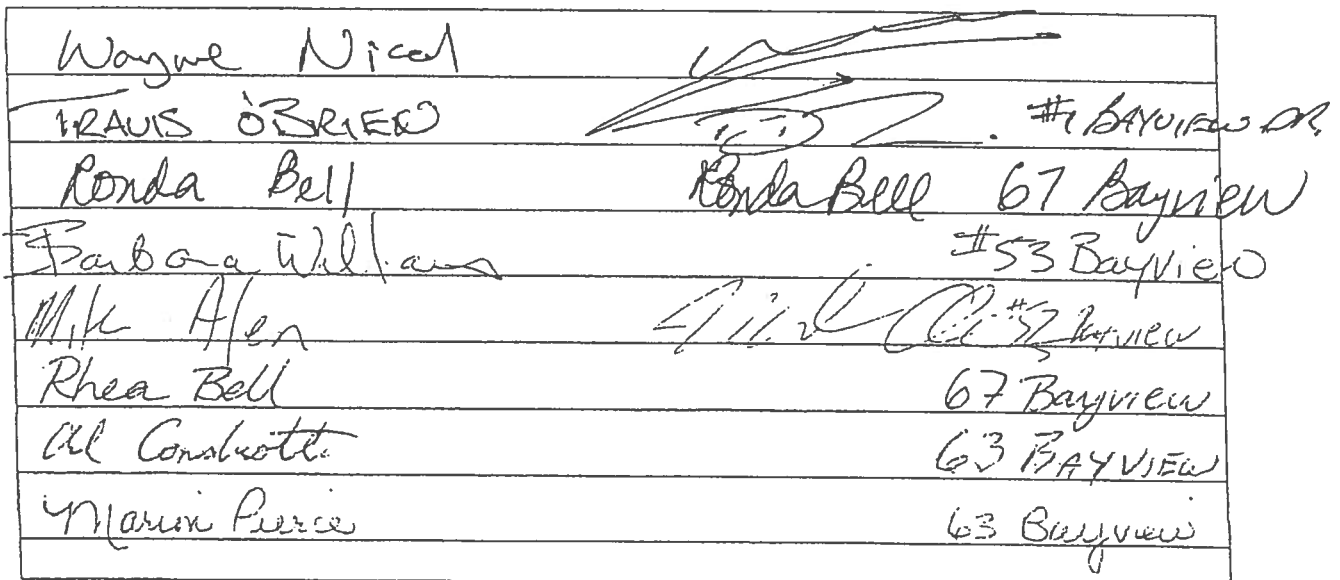 Wayne Nicol
TRAVIS O'BRIEN #1 BAYVIEW DR.
Ronda Bell Ronda Bell 67 Bayview
Barbara Williams #53 Bayview
Mike Allen Bayview
Rhea Bell 67 Bayview
Al 63 BAYVIEW
Marion Pierce 63 Bayview